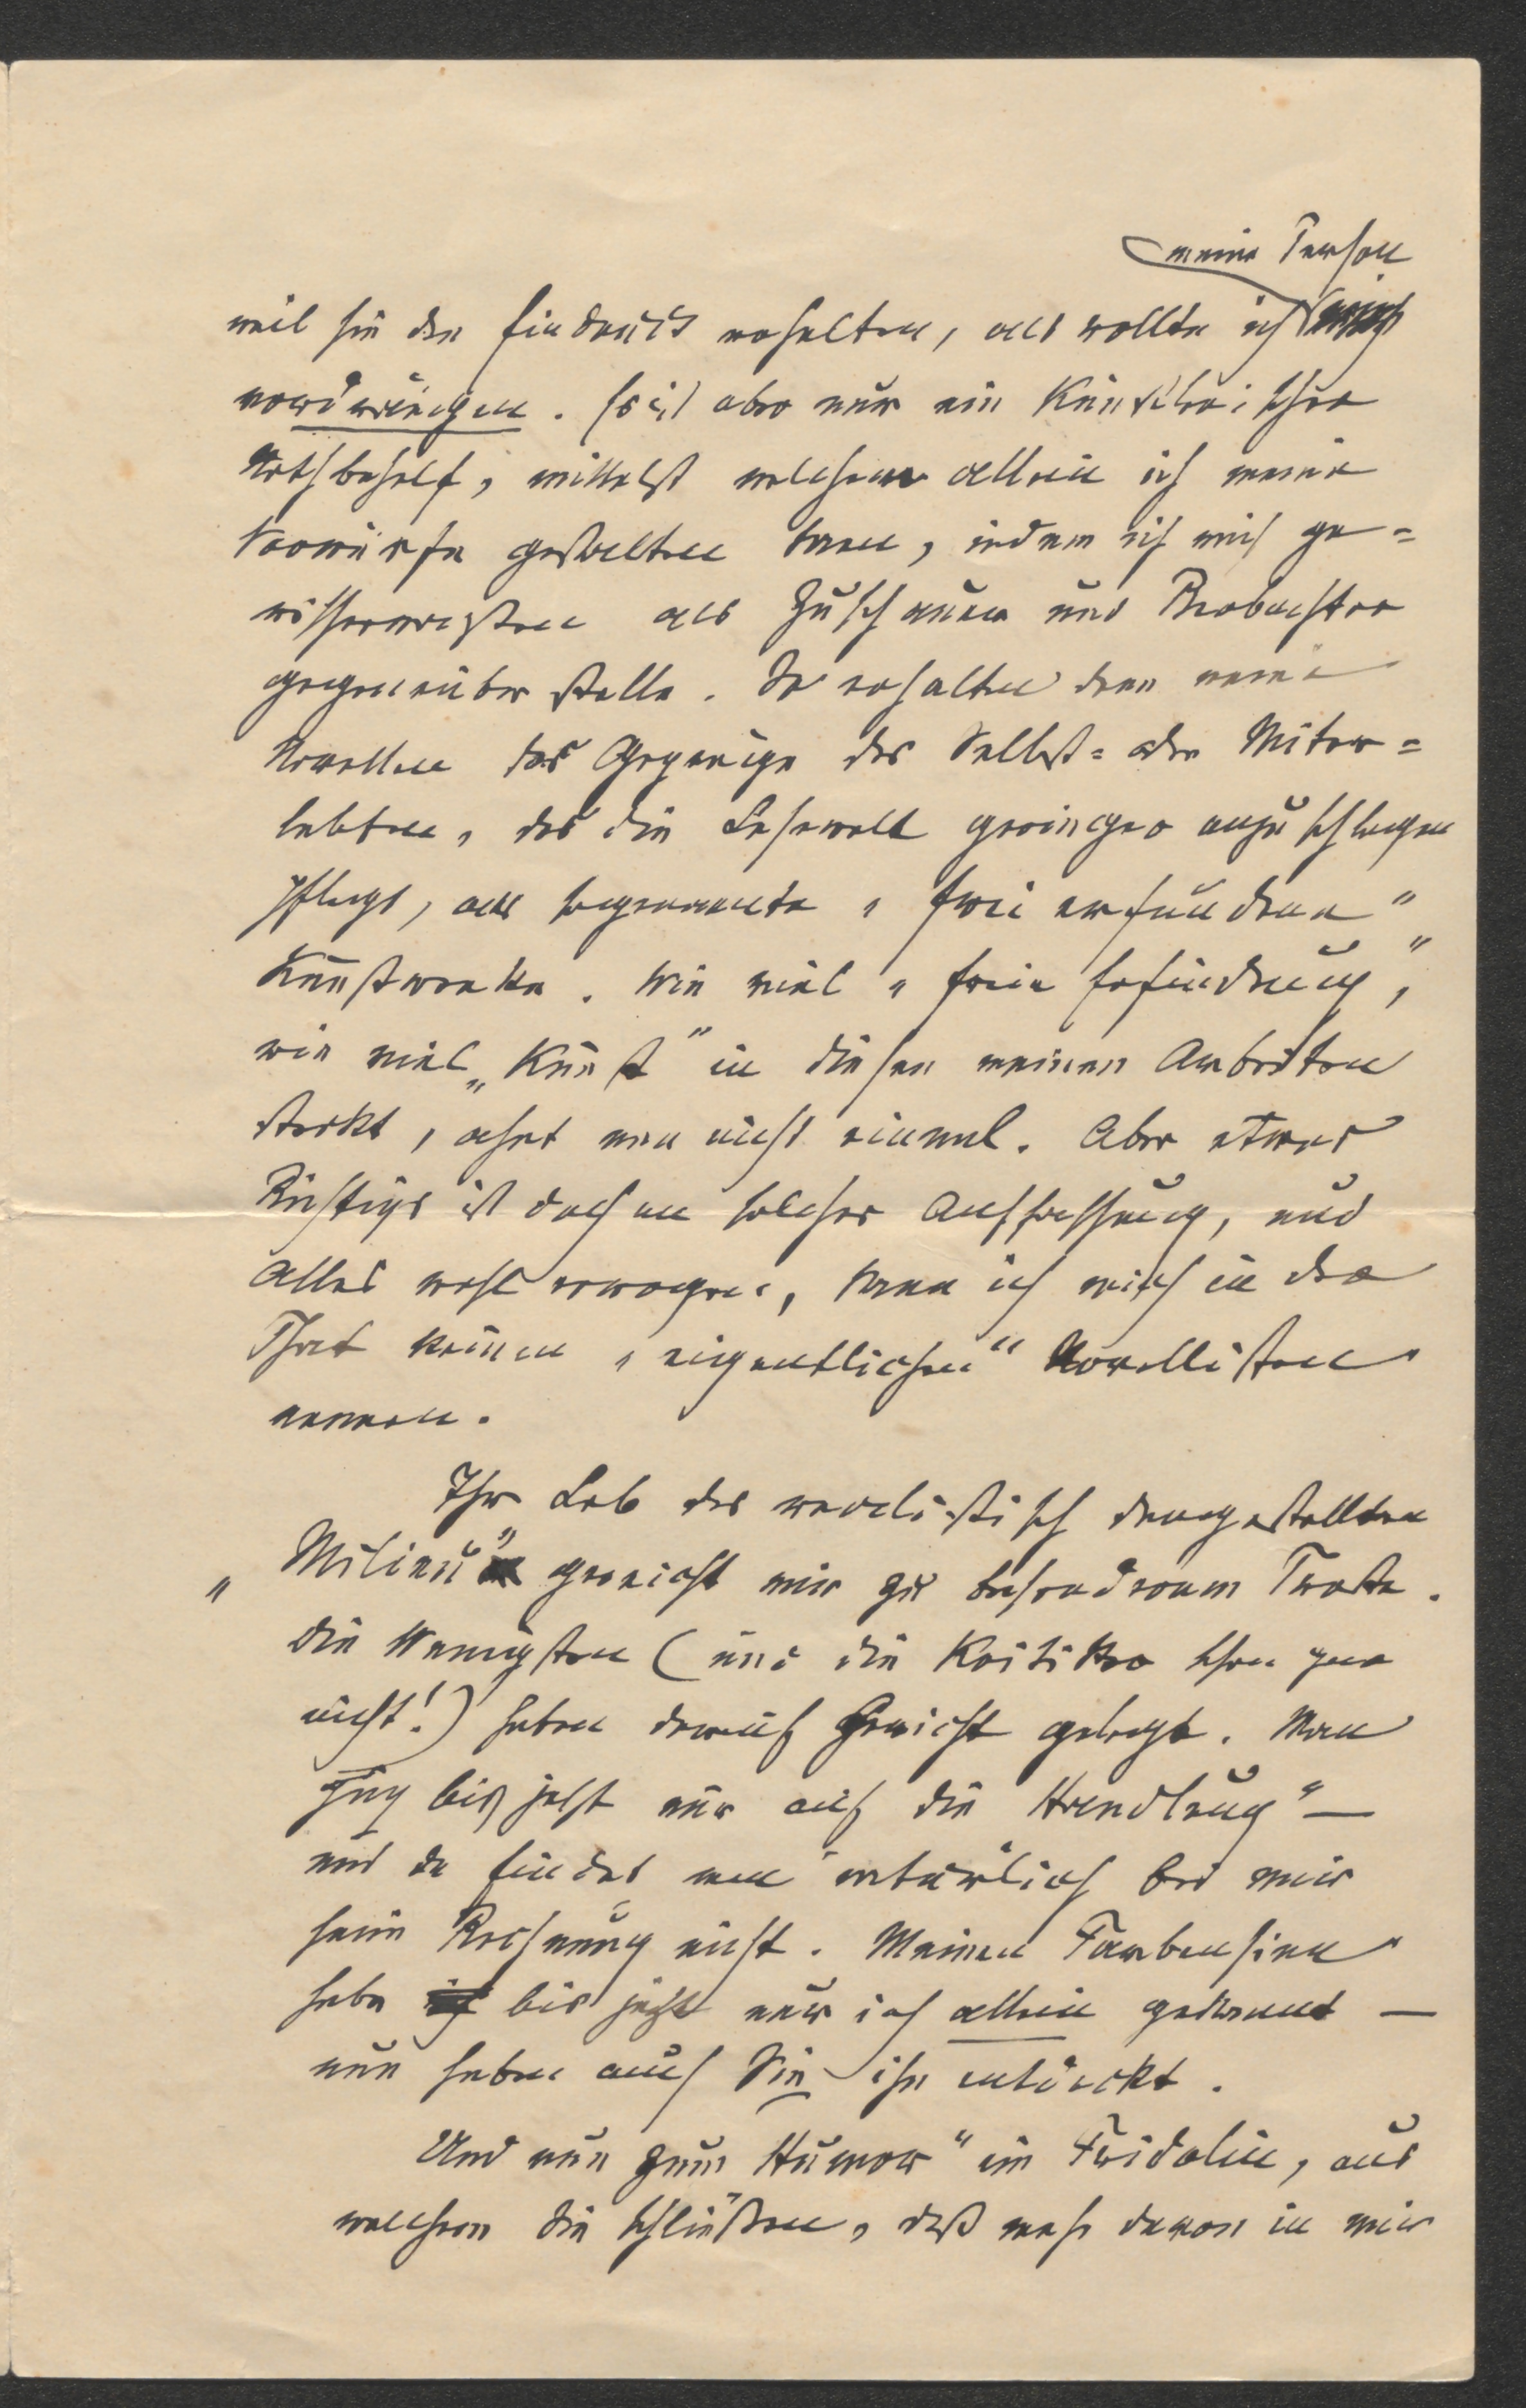 meine Person
weil sie den Eindruck erhalten, als wollte ich mich
vordrängen. Es ist aber nur ein künstlerischer
Nothbehelf, mittelst welchem allein ich meine
Vorwürfe gestalten kann, indem ich mich ge=
wissermaßen als Zuschauer und Beobachter
gegenüber stelle. So erhalten denn meine
Novellen das Gepräge des Selbst= oder Miter=
lebten, das die Lesewelt geringer anzuschlagen
pflegt, als sogenannte „frei erfundene“
Kunstwerke. Wie viel „freie Erfindung“,
wie viel „Kunst“ in diesen meinen Arbeiten
steckt, ahnt man nicht einmal. Aber etwas
Richtiges ist doch an solcher Auffassung, und
Alles wohl erwogen, kann ich mich in der
That keinen „eigentlichen“ Novellisten
nennen.
Ihr Lob des realistisch dargestellten
„Milieu“ gereicht mir zu besonderem Troste.
Die Wenigsten (und die Kritiker schon gar
nicht!) haben darauf Gewicht gelegt. Man
ging bis jetzt nur auf die Handlung“ —
und da findet man natürlich bei mir
seine Rechnung nicht. Meinen Farbensinn
habe ich bis jetzt nur ich allein gekannt —
nun haben auch Sie ihn entdeckt.
Und nun zum Humor“ im Fridolin, aus
welchem Sie schließen, daß mehr davon in mir